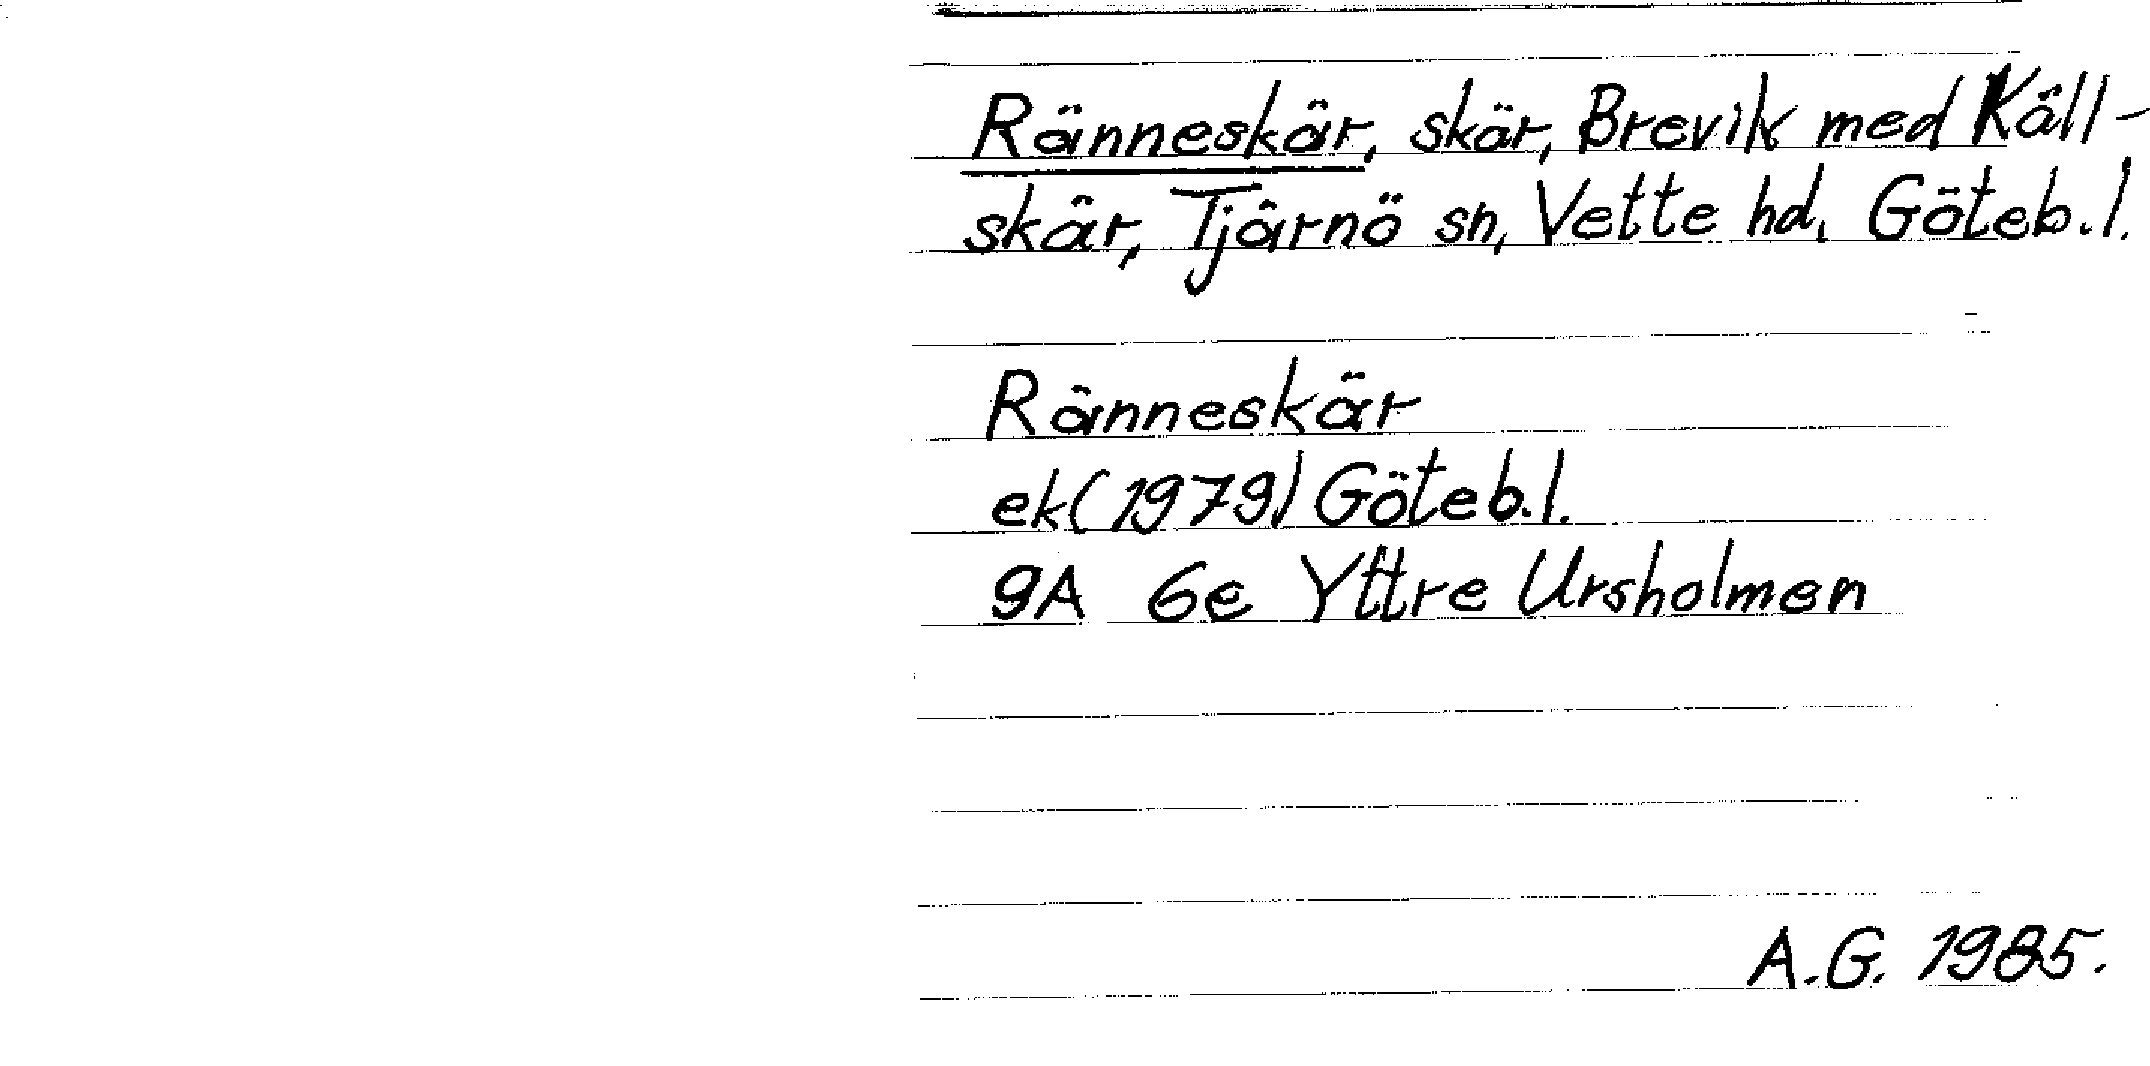 Ränneskär, skär, Brevik med Käll-
skär, Tjärnö sn, Vette hd, Göteb.l.
Ränneskär
ek(1979) Göteb.l.
9A 6e Yttre Ursholmen
A.G. 1985.